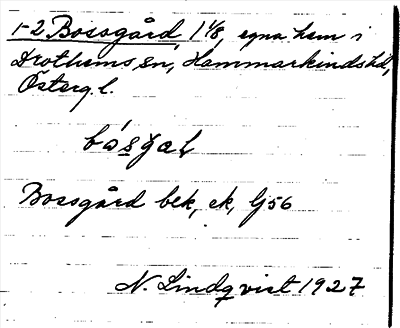 1-2 Bossgård 1 1/8, egna hem i
Drothems sn, Hammarkinds hd,
Österg. l.
Bossgård bek, ek, G 56
N. Lindqvist 1927